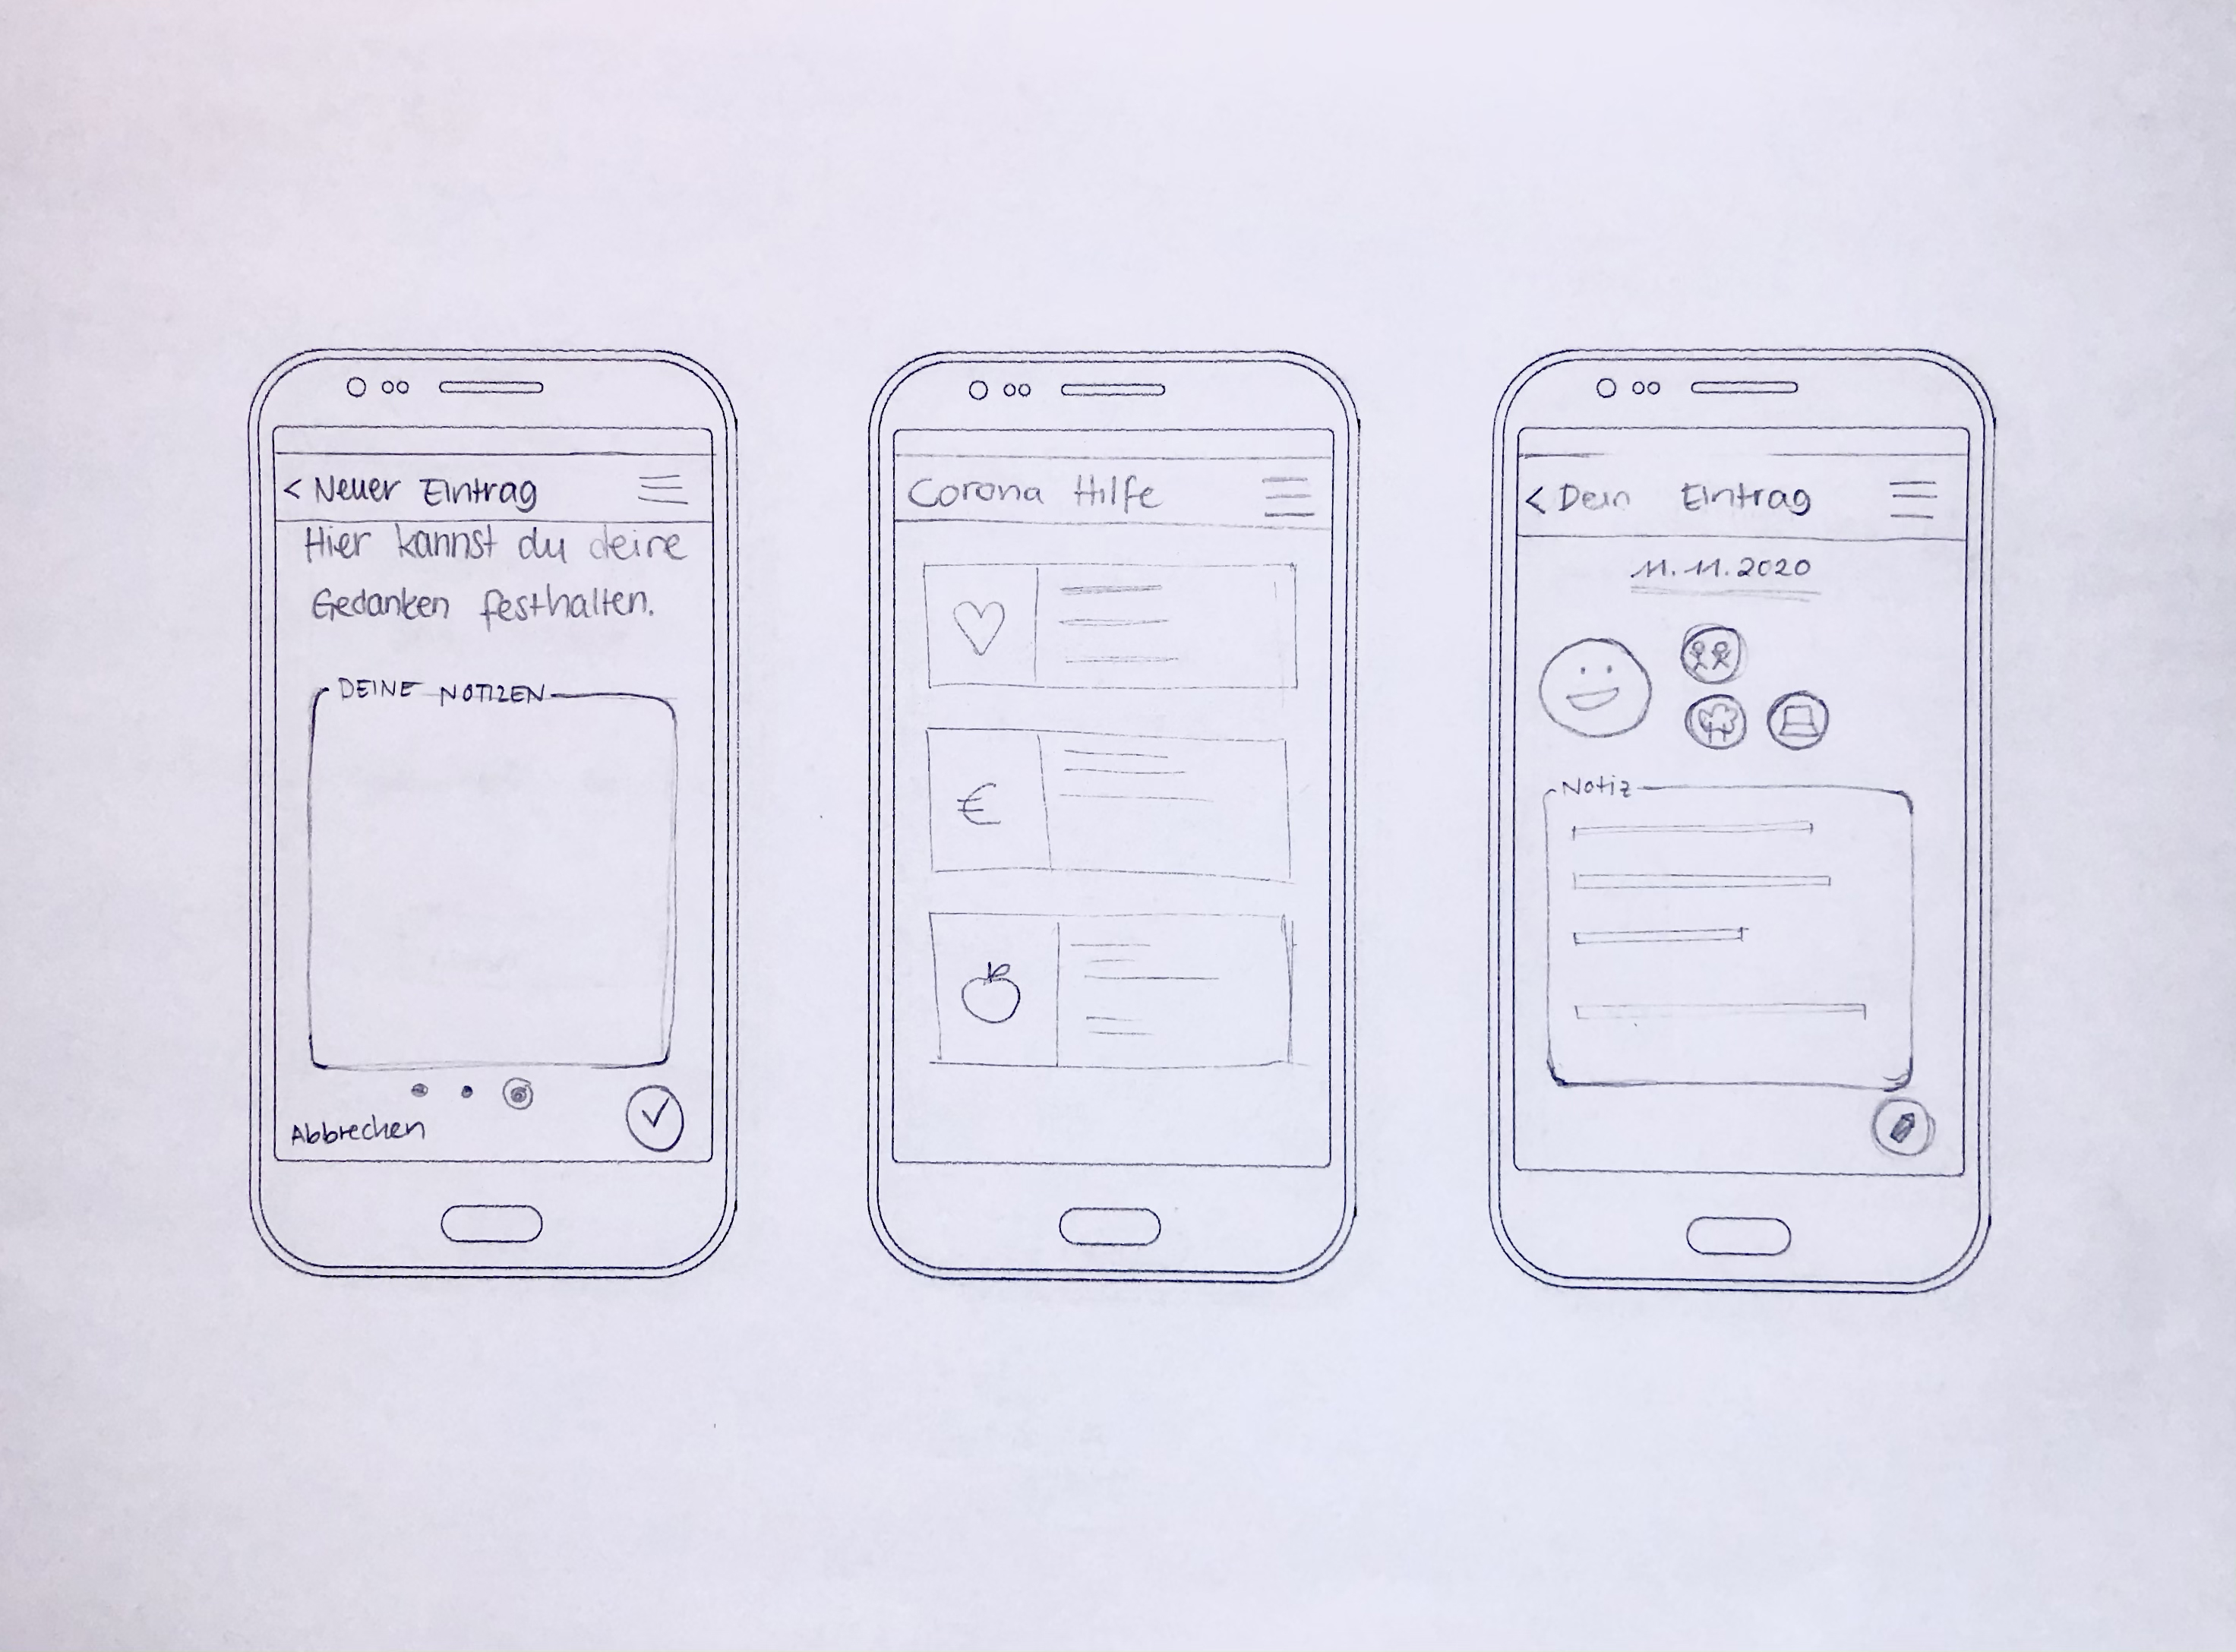 < Neuer Eintrag
Hier kannst du deine
Gedanken festhalten.
DEINE NOTIZEN
Abbrechen
Corona Hilfe
€
< Dein Eintrag
11.11.2020
Notiz